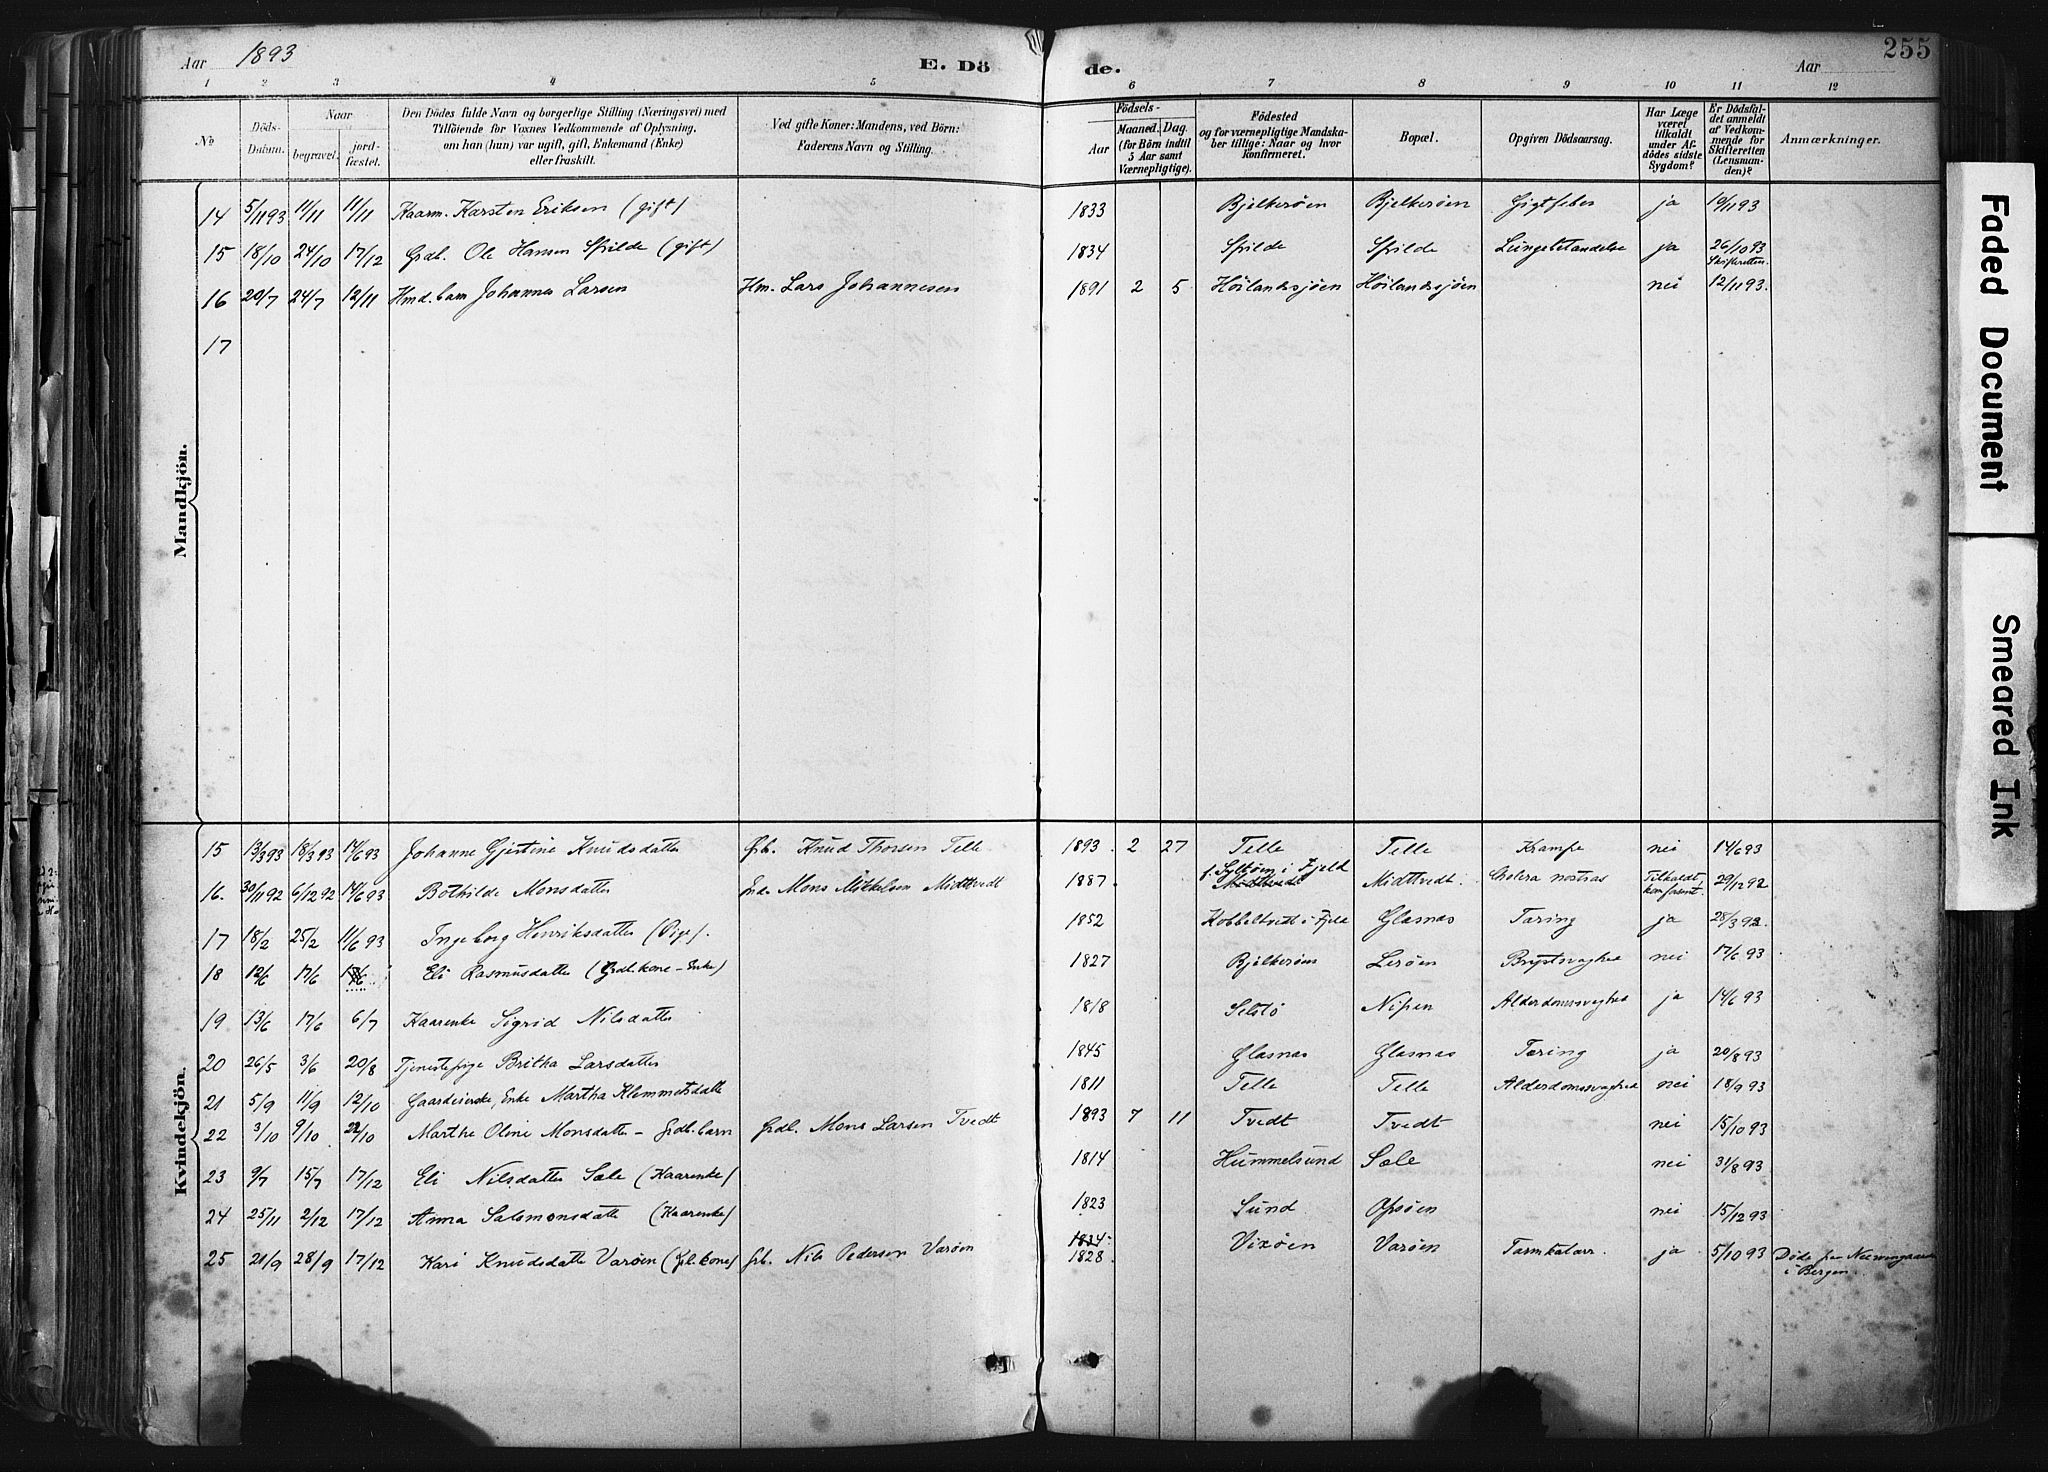 Aar 1893
E. Dö
de.
Aar
255
1 2 3 4 5 6 7 8 9 10 11 12
No
Döds-Datum.
Naar
begravet.
jord-fæstet.
Den Dödes fulde Navn og borgerlige Stilling (Næringsvei) med
Tilföiende for Voxnes Vedkommende af Oplysning,
om han (hun) var ugift, gift, Enkemand (Enke)
eller fraskilt.
Ved gifte Koner: Mandens, ved Börn:
Faderens Navn og Stilling.
Födsels-
Aar
Maaned. Dag.
(for Börn indtil
5 Aar samt
Værnepligtige).
Födested
og for værnepligtige Mandska-
ber tillige: Naar og hvor
konfirmeret.
Bopæl.
Opgiven Dödsaarsag.
Har Læge
været
tilkaldt
under Af-
dödes sidste
Sygdom?
Er Dödsfal-
det anmeldt
af Vedkom-
mende for
Skifteretten
(Lensman-
den)?
Anmærkninger.
Mandkjön.
14 5/11 93 11/11 11/11 Kaarm. Karsten Eriksen (gift) 1833 Bjelkerøen Bjelkerøen Gigtfeber ja 19/11 93
15 18/10 24/10 17/12 Grdb. Ole Hansen Spilde (gift) 1834 Spilde Spilde Lungebetændelse ja 26/10 93 Skifteretten.
16 20/7 24/7 12/11 Hmd. barn Johannes Larsen Hm. Lars Johannesen 1891 2 5 Høilandsjøen Høilandsjøen nei 12/11 93.
17
Kvindekjön.
15 13/3 93 18/3 93 14/6 93 Johanne Gjertine Knudsdatter Gb. Knud Thorsen Telle 1893 2 27 Telle Telle Krampe nei 14/6 93
16. 30/11 92 6/12 92 14/6 93 Bothilde Monsdatter Mons Mikkelsen Midttvedt 1887 i Fjeld Midttvedt Midttvedt. Cholera nostras Tilkaldt, 29/12 92
17 18/2 25/2 11/6 93 Ingeborg Henriksdatter (Pige). 1852 Kobbeltvedt i Fjeld Glasnæs Tæring ja 28/3 92.
18 12/6 17/6 Eli Rasmusdatter (Grdb. kone - Enke) 1827 Bjelkerøen Lerøen Brystsvaghed nei 17/6 93
19 13/6 17/6 6/7 Kaarenke Sigrid Nilsdatter 1818 Selstø Nipen Alderdomssvaghed ja 14/6 93
20 26/5 3/6 20/8 Tjenestepige Britha Larsdatter 1845 Glasnæs Glasnæs Tæring ja 20/8 93
21 5/9 11/9 12/10 Gaardeierske, Enke Martha Klemmetsdatte 1811 Telle Telle Alderdomssvaghed nei 18/9 93
22 3/10 9/10 22/10 Marthe Oline Monsdatter - Grdb. barn Grdb. Mons Larsen Tvedt 1893 7 11 Tvedt Tvedt nei 15/10 93
23 9/7 15/7 17/12 Eli Nilsdatter Sæle (Kaarenke) 1814 Hummelsund Sæle nei 31/8 93
24 25/11 2/12 17/12 Anna Salomonsdatte (Kaarenke) 1823 Sund Opsøen nei 15/12 93
25 21/9 28/9 17/12 Kari Knudsdatte Varøen (Gb. kone) Gb. Nils Pedersen Varøen 1834 1828 Vixøen Varøen Tarmkatarr. ja 5/10 93 Døde paa Neevengaarden
i Bergen.
Faded Document
Smeared Ink